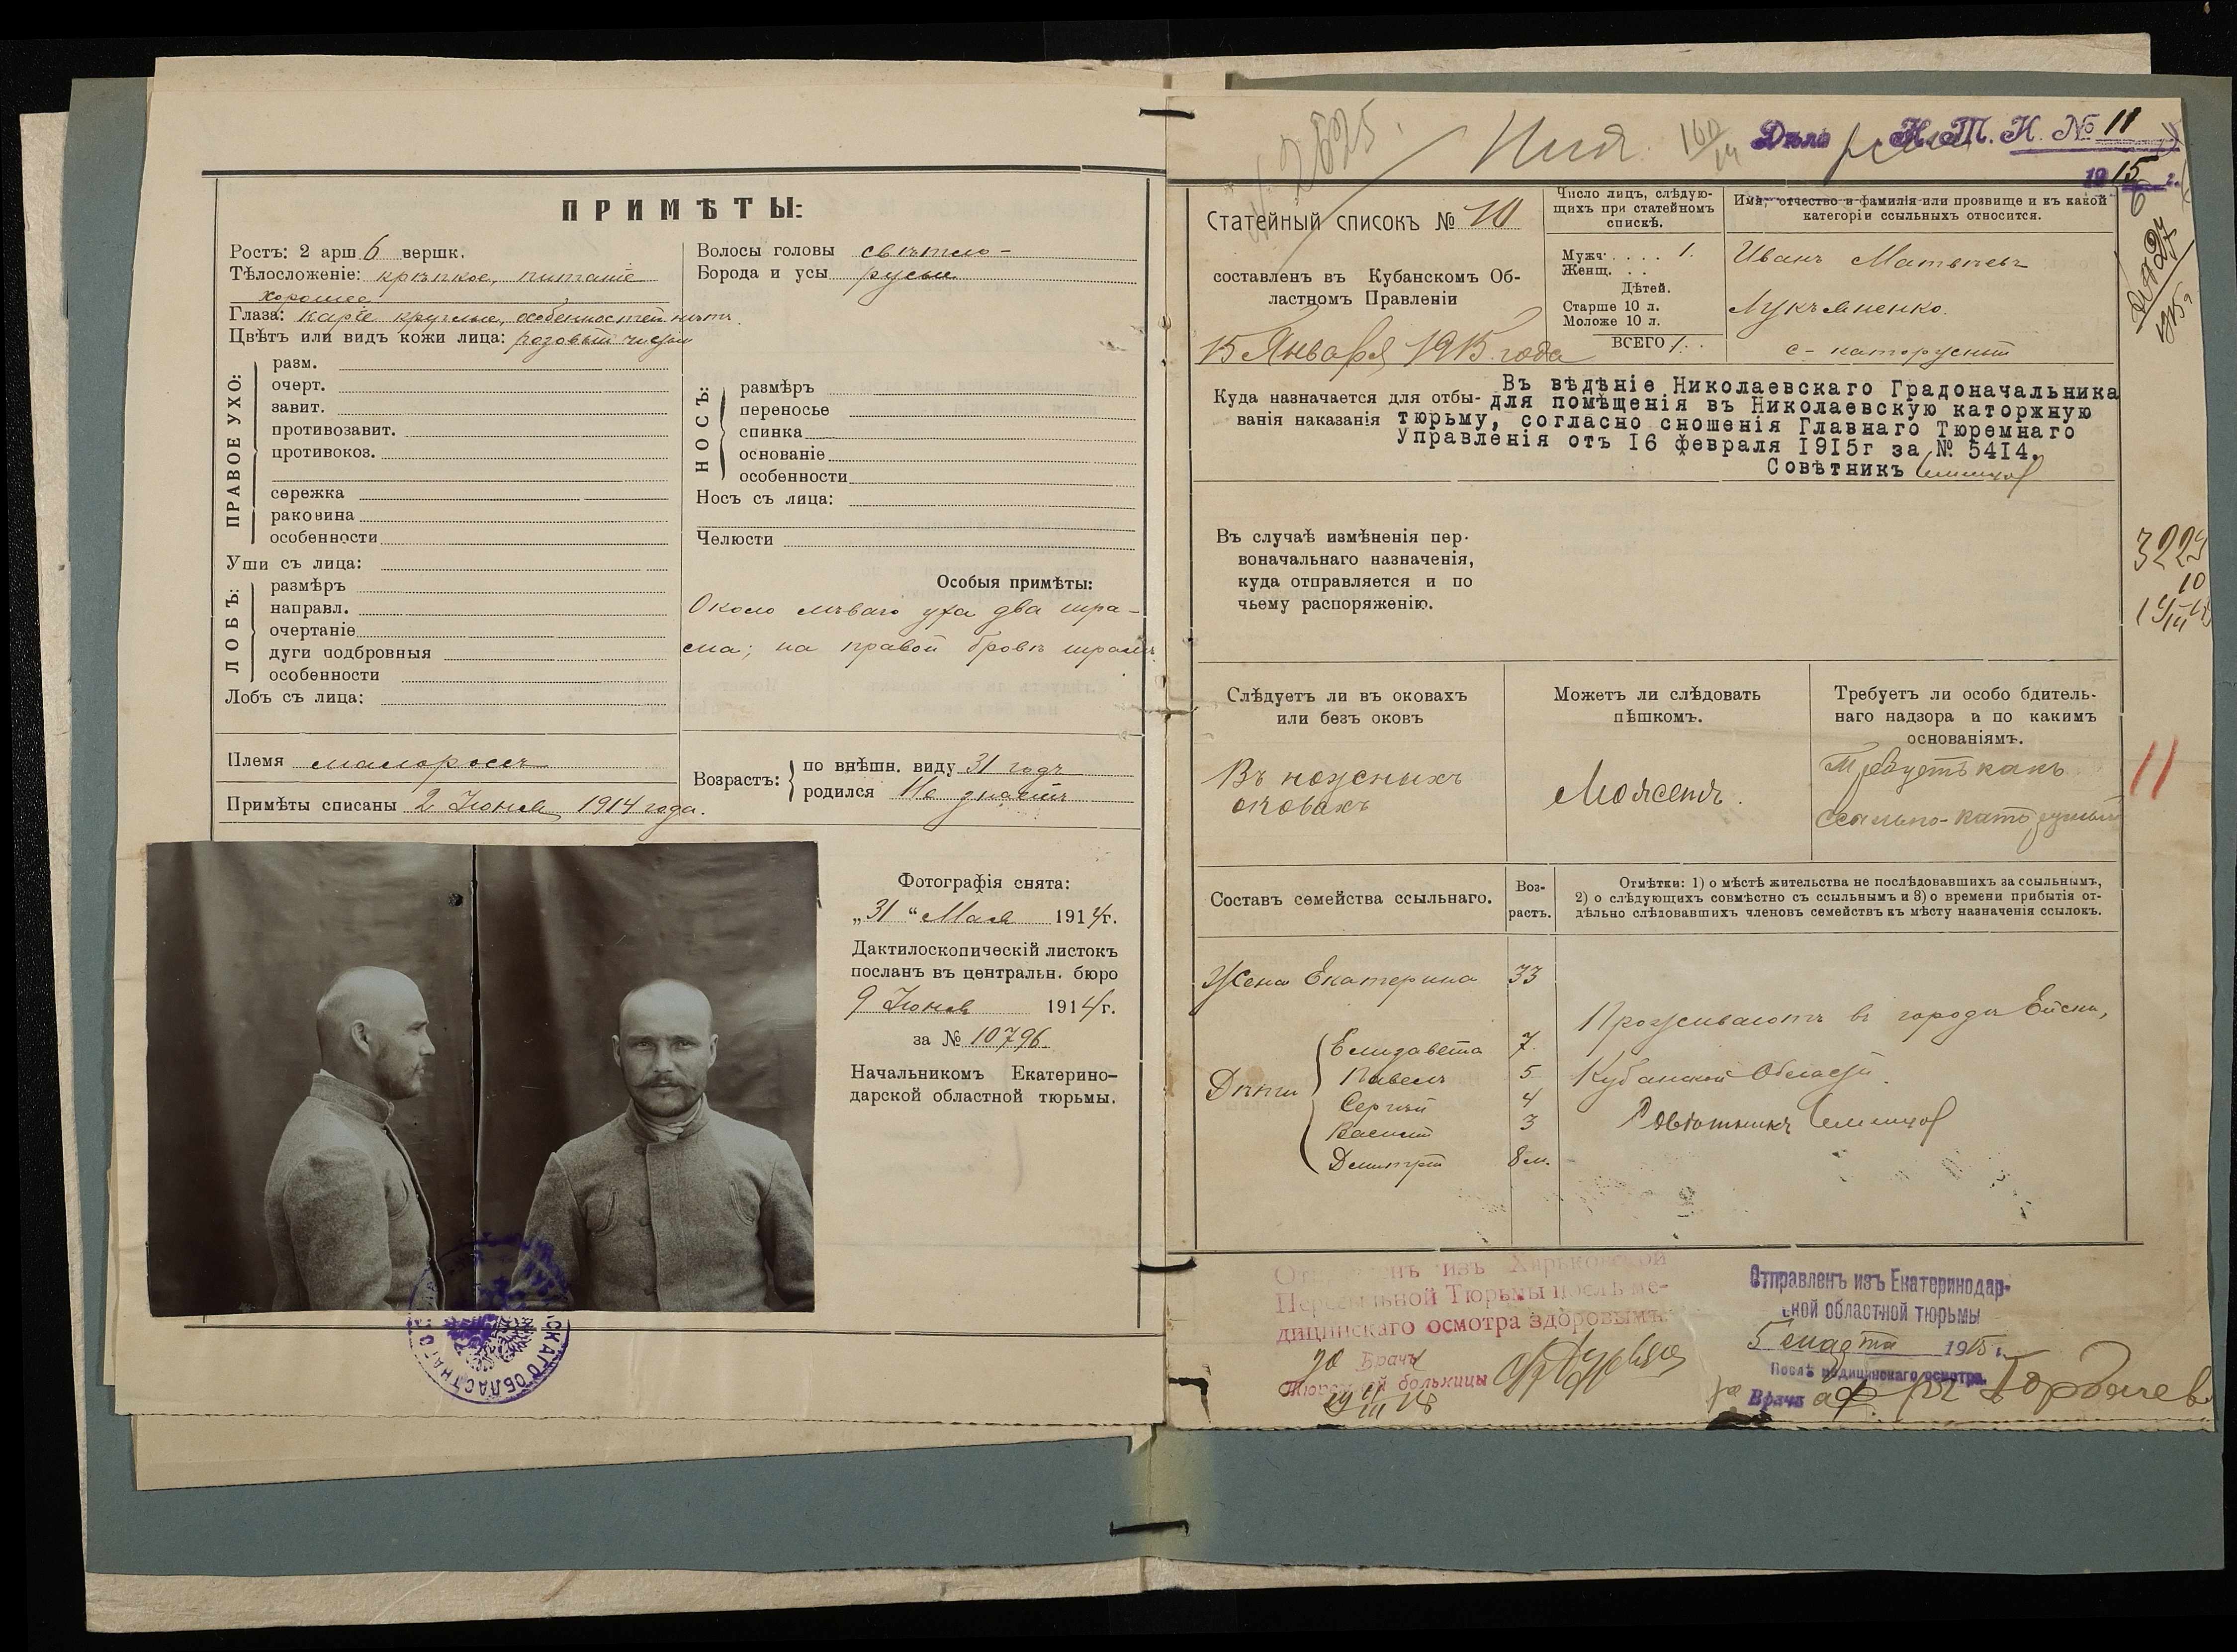 ПРИМѢТЫ:
Ростъ: 2 арш 6 вершк.
Тѣлосложеніе: крѣпкое, питаніе
хорошее
Глаза: каріе круглые, особенностей нѣтъ
Цвѣтъ или видъ кожи лица: розовый чистый
ПРАВОЕ УХО:
разм.
очерт.
завит.
противозавит.
противокоз.
сережка
раковина
особенности
Уши съ лица:
ЛОБЪ:
размѣръ
направл.
очертаніе
дуги подбровныя
особенности
Лобъ съ лица:
Племя малороссъ
Примѣты списаны 2 Іюня 1914 года.
Волосы головы свѣтло-
Борода и усы русые
НОСЪ:
размѣръ
переносье
спинка
основаніе
особенности
Носъ съ лица:
Челюсти
Особыя примѣты:
Около лѣваго уха два шра-
ма; на правой бровѣ шрамъ
Возрастъ:
по внѣшн. виду 31 годъ
родился Не знаетъ
Фотографія снята:
„31“ Мая 1914г.
Дактилоскопическій листокъ
посланъ въ центральн. бюро
9 Іюня 1914г.
за № 10796.
Начальникомъ Екатерино-
дарской областной тюрьмы.
2525.
Дѣло Н.Т.К. № 11
1915 г.
Статейный списокъ № 10
составленъ въ Кубанскомъ Об-
ластномъ Правленіи
15 Января 1915 года
Число лицъ, слѣдую-
щихъ при статейномъ
спискѣ.
Мужч. . . . . 1.
Женщ. . .
Дѣтей.
Старше 10 л.
Моложе 10 л.
ВСЕГО 1. .
Имя, отчество и фамилія или прозвище и къ какой
категоріи ссыльныхъ относится.
Иванъ Матвѣевъ
Лукьяненко.
с-каторжный
Куда назначается для отбы-
ванія наказанія
Въ вѣдѣніе Николаевскаго Градоначальника
для помѣщенія въ Николаевскую каторжную
тюрьму, согласно сношенія Главнаго Тюремнаго
Управленія отъ 16 февраля 1915г за № 5414.
Совѣтникъ
Въ случаѣ измѣненія пер-
воначальнаго назначенія,
куда отправляется и по
чьему распоряженію.
3229
10
Слѣдуетъ ли въ оковахъ
или безъ оковъ
Въ ножныхъ
оковахъ
Можетъ ли слѣдовать
пѣшкомъ.
Можетъ.
Требуетъ ли особо бдитель-
наго надзора и по какимъ
основаніямъ.
Требуетъ какъ
ссыльно-каторжный
11
Составъ семейства ссыльнаго.
Воз-
растъ.
Отмѣтки: 1) о мѣстѣ жительства не послѣдовавшихъ за ссыльнымъ,
2) о слѣдующихъ совмѣстно съ ссыльнымъ и 3) о времени прибытія от-
дѣльно слѣдовавшихъ членовъ семействъ къ мѣсту назначенія ссылокъ.
Жена Екатерина 33
Дѣти
Елизавета 7
Павелъ 5
Сергѣй 4
Василій 3
Димитрій 8 м.
Проживаютъ въ городѣ Ейскѣ,
Кубанской Области.
Совѣтникъ
Отправленъ изъ Харьковской
Пересыльной Тюрьмы послѣ ме-
дицинскаго осмотра здоровымъ.
Врачъ
Тюремной больницы
Отправленъ изъ Екатеринодар-
ской областной тюрьмы
5 марта 1915 г.
Послѣ медицинскаго осмотра.
за Врача Горбачевъ